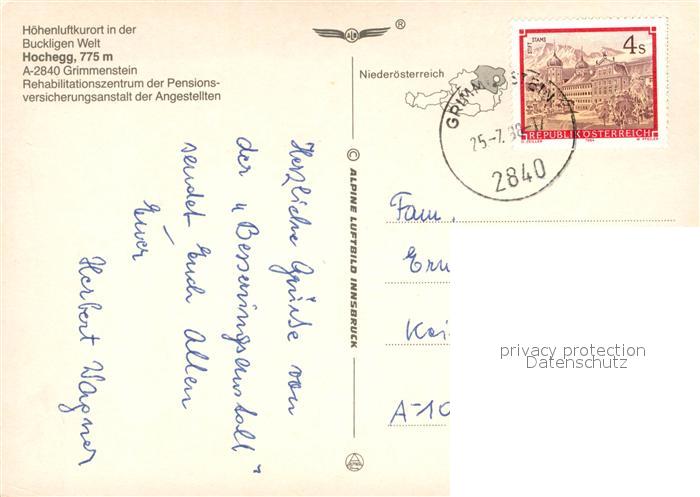 Höhenluftkurort in der
Buckligen Welt
Hochegg, 775 m
A-2840 Grimmenstein
Rehabilitationszentrum der Pensions-
versicherungsanstalt der Angestellten
®
Niederösterreich
STIFT STAMS
4 S
REPUBLIK ÖSTERREICH
1984
2840
© ALPINE LUFTBILD INNSBRUCK
Herzliche Grüße von
der "Besserungsanstalt"
sendet Euch Allen
Euer
Herbert Wagner
Fam.
A-10
privacy protection
Datenschutz